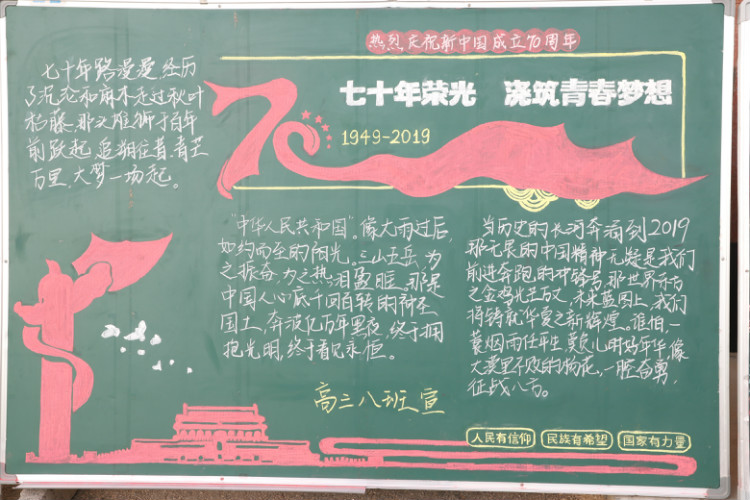 热烈庆祝新中国成立70周年
七十年荣光 浇筑青春梦想
70
1949-2019
七十年路漫漫,经历
了沉沦和麻木,走过秋叶
枯藤,那头雄狮于百年
前跃起,追溯往昔,青芒
万里,大梦一场起。
“中华人民共和国”。像大雨过后,
如约而至的阳光。三山五岳,为
之振奋,为之热泪盈眶。那是
中国人心底千回百转的神圣
国土,奔波亿万年黑夜,终于拥
抱光明,终于看见永恒。
当历史的长河奔涌到2019
那无畏的中国精神无疑是我们
前进奔跑的冲锋号,那世界东方
之金鸡光芒万丈,未来蓝图上,我们
将铸就华夏之新辉煌。谁怕,一
蓑烟雨任平生,莫儿时好年华,像
大漠里不败的杨花,一腔奋勇,
征战八方。
高三八班宣
人民有信仰 民族有希望 国家有力量